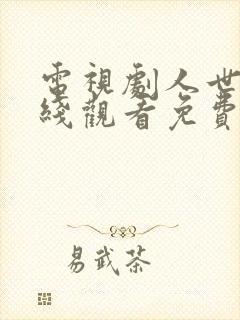 電視劇人世
綫觀看免費
易武茶